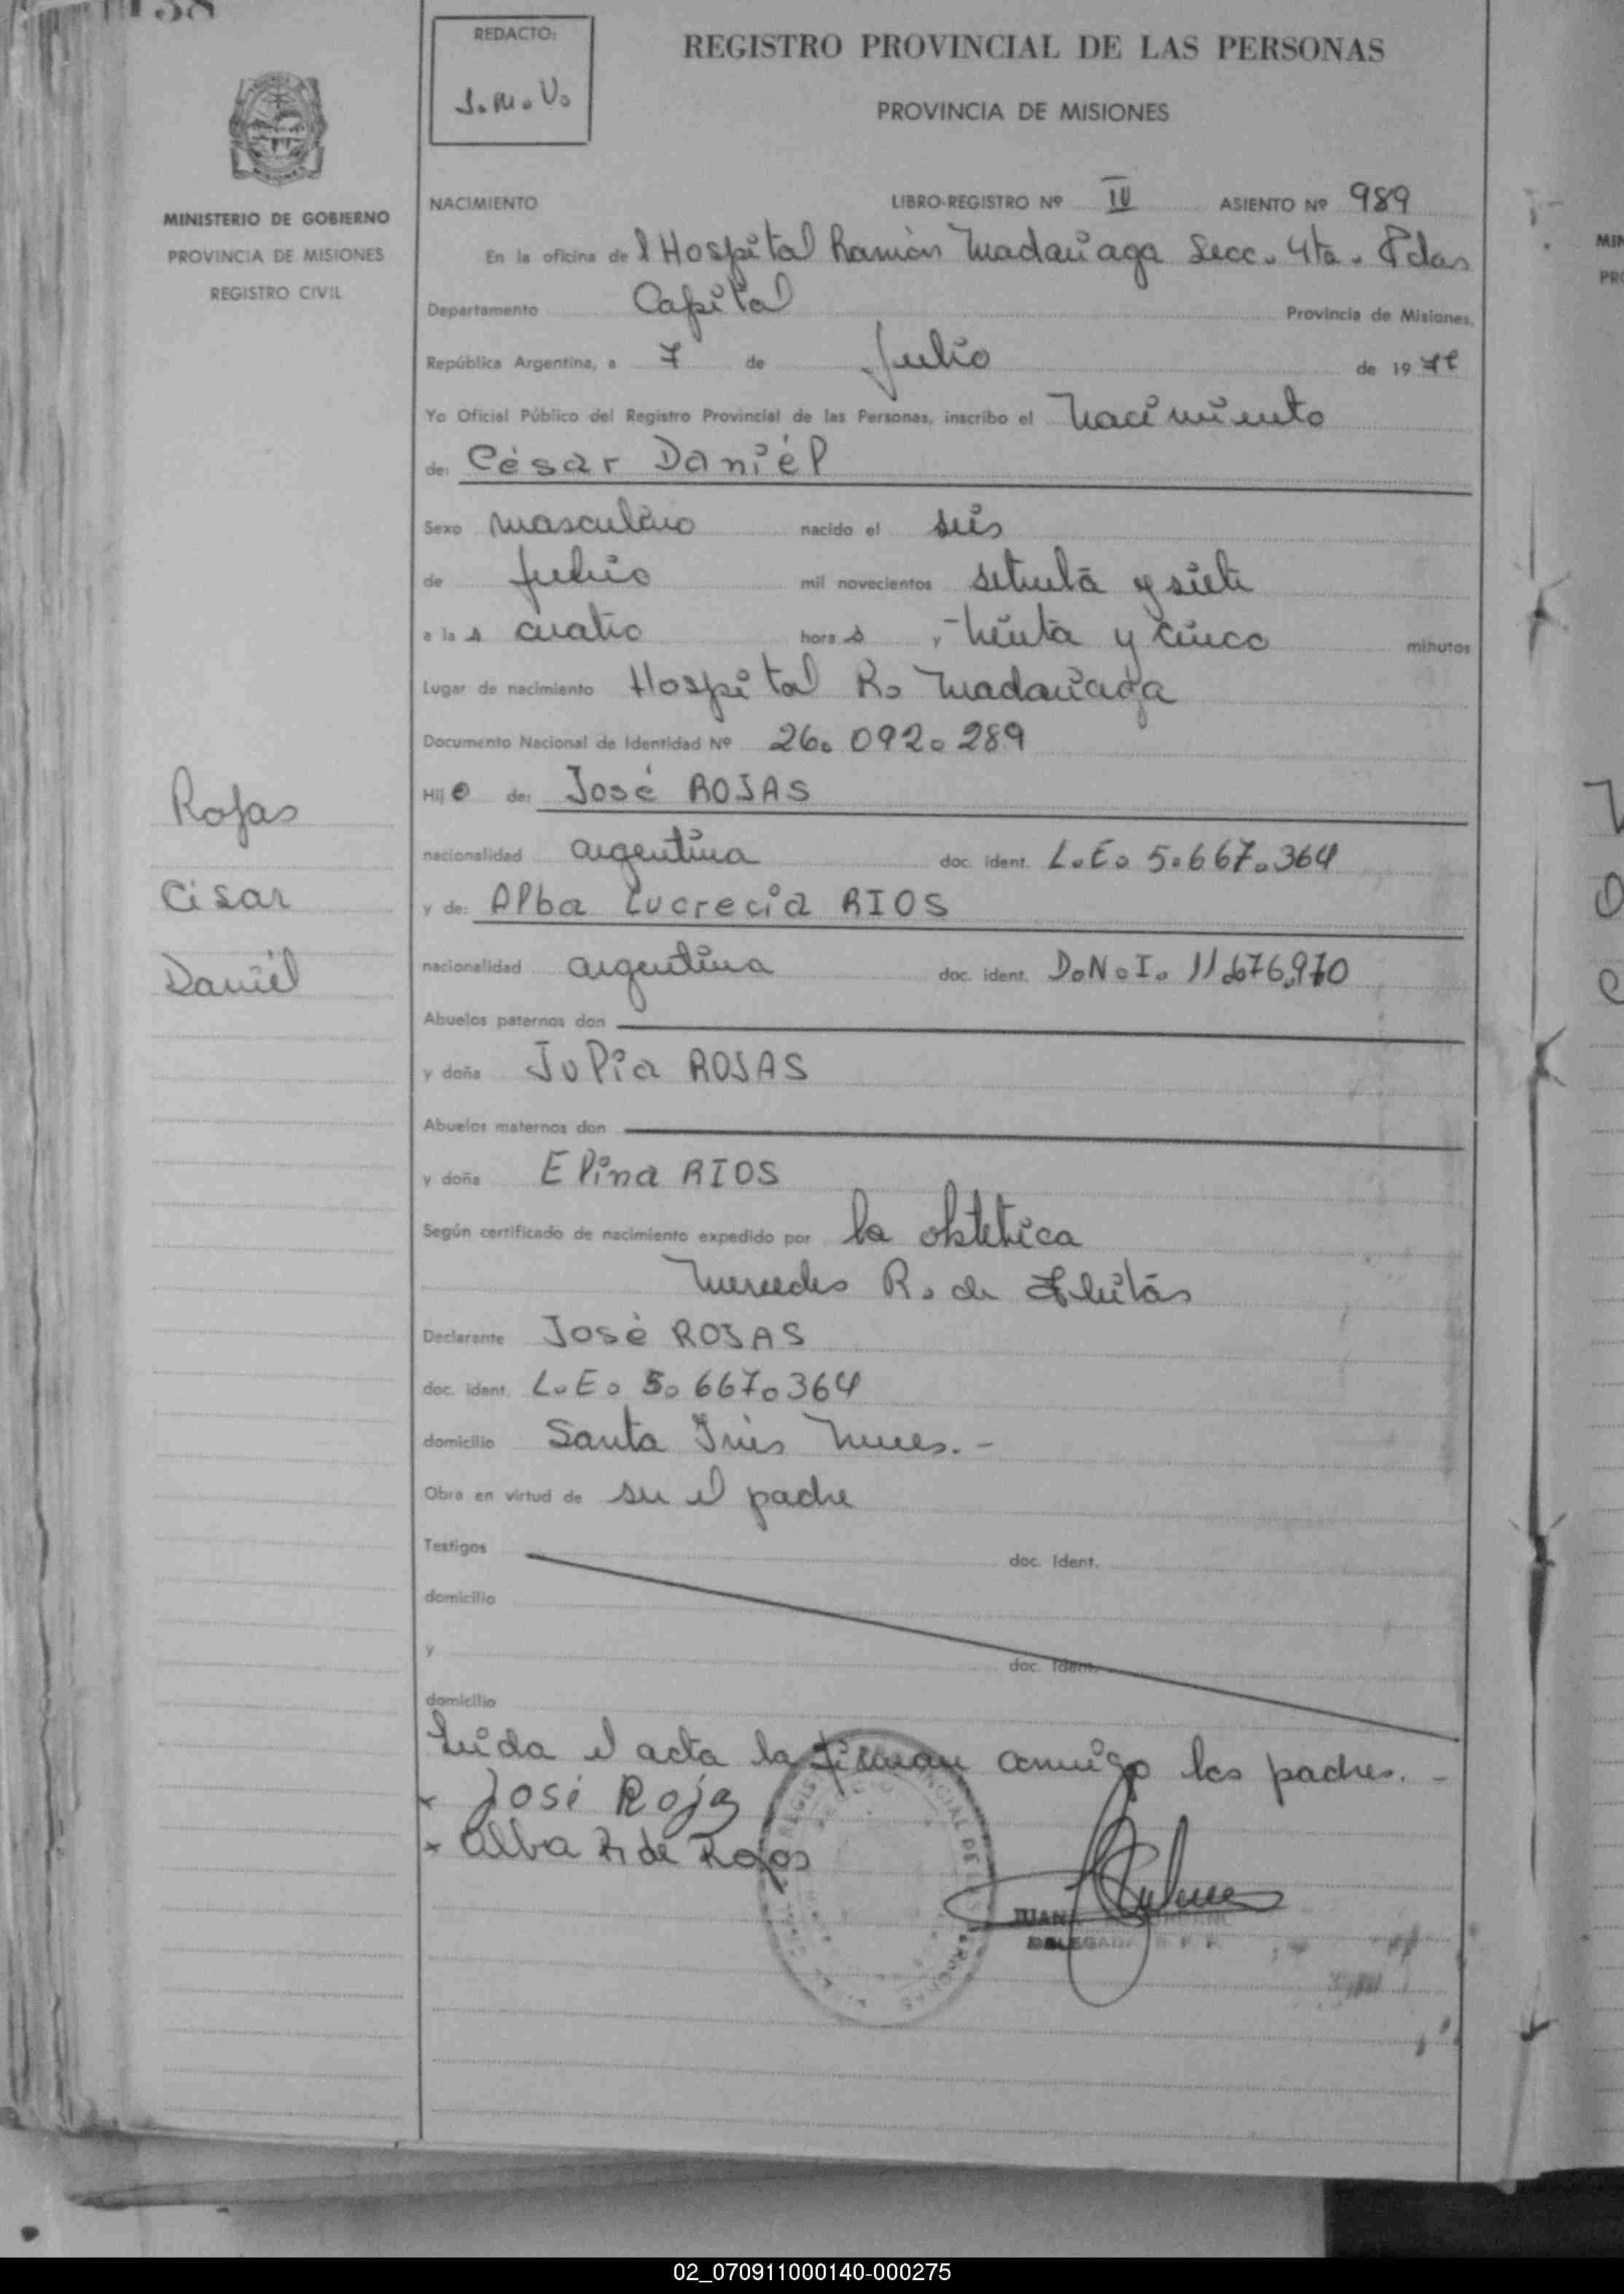 138
REDACTO:
J.M.V.
REGISTRO PROVINCIAL DE LAS PERSONAS
PROVINCIA DE MISIONES
MINISTERIO DE GOBIERNO
PROVINCIA DE MISIONES
REGISTRO CIVIL
NACIMIENTO LIBRO-REGISTRO Nº IV ASIENTO Nº 989
En la oficina del Hospital Ramón Madariaga Secc. 4ta. Pdas
Departamento Capital Provincia de Misiones,
República Argentina, a 7 de Julio de 1977
Yo Oficial Público del Registro Provincial de las Personas, inscribo el Nacimiento
de: César Daniél
Sexo masculino nacido el seis
de Julio mil novecientos setenta y siete
a las cuatro horas y treinta y cinco minutos
Lugar de nacimiento Hospital R. Madariaga
Documento Nacional de Identidad Nº 26.092.289
Hijo de: José ROJAS
nacionalidad argentina doc. ident. L.E. 5.667.364
y de: Alba Lucrecia RIOS
nacionalidad argentina doc. ident. D.N.I. 11.676.970
Abuelos paternos don
y doña Julia ROJAS
Abuelos maternos don
y doña Elina RIOS
Según certificado de nacimiento expedido por la obstetrica
Mercedes R. de Fleitas
Declarante José ROJAS
doc. ident. L.E. 5.667.364
domicilio Santa Inés Mnes. -
Obra en virtud de ser el padre
Testigos doc. Ident.
domicilio
y doc. Ident.
domicilio
Leida el acta la firman conmigo los padres. -
x José Roja
x Alba R de Rojas
JUANA
DELEGADA R. P. P.
Rojas
César
Daniél
02_070911000140-000275